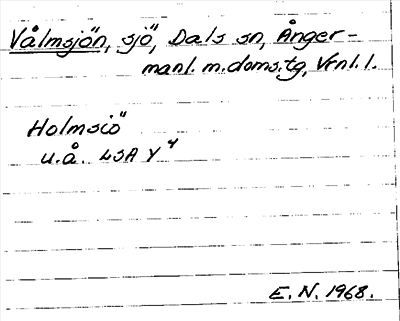 Vålmsjön, sjö, Dals sn, Ånger-
manl. m. doms.tg, Vrnl. l.
Holmsiö
u.å. LSA Y 4
E. N. 1968.